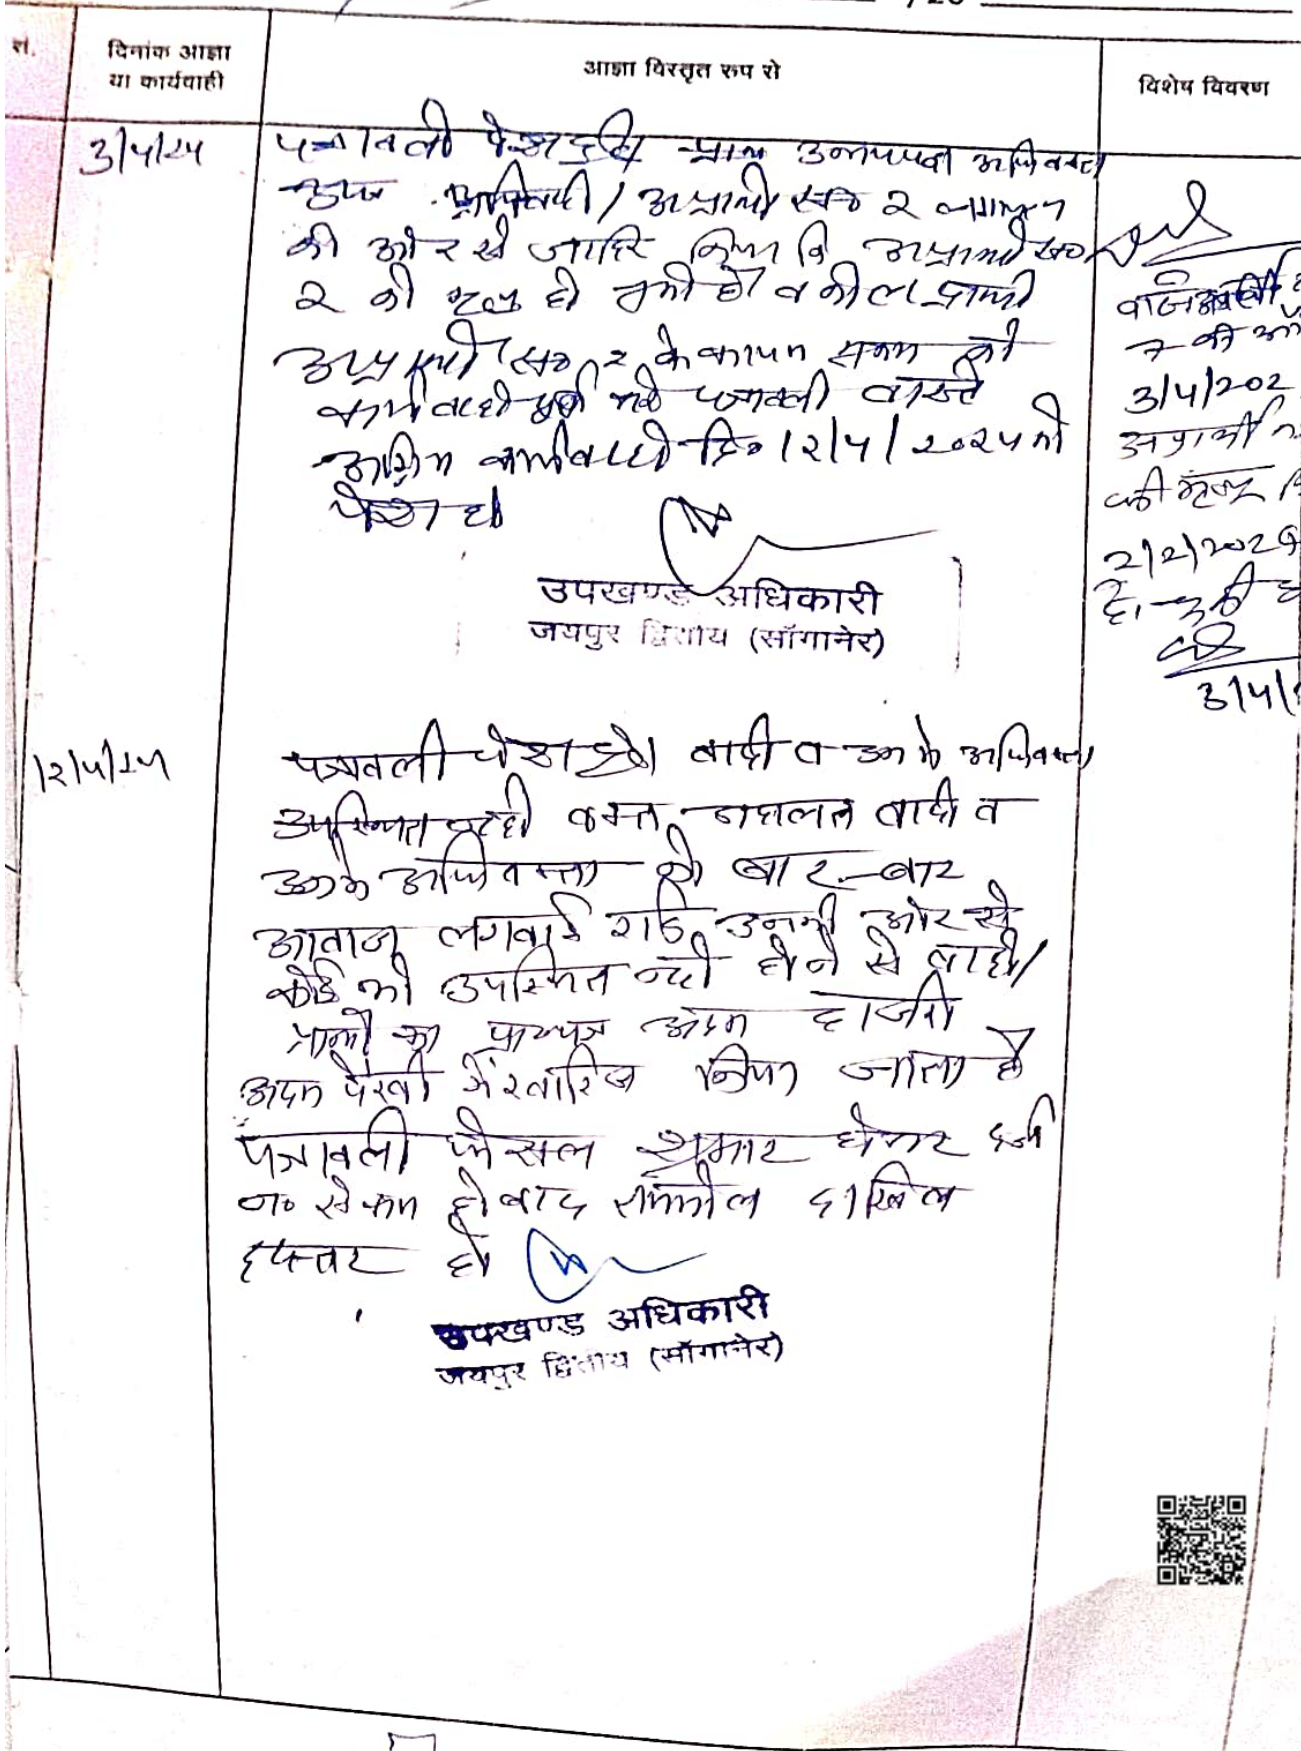 दिनांक आज्ञा
या कार्यवाही
आज्ञा विस्तृत रूप से
विशेष विवरण
3/4/24
पत्रावली पेश हुई। उभयपक्ष अधिवक्ता
अप्रार्थी सं० 2
की ओर से जाहिर किया कि अप्रार्थी सं०
2 की मृत्यु हो चुकी है वकील प्रार्थी
अप्रार्थी सं० 2 के कायम मकाम की
कार्यवाही पत्रावली वास्ते
अग्रिम कार्यवाही दि० 12/4/2024 को
पेश हो
उपखण्ड अधिकारी
जयपुर द्वितीय (साँगानेर)
7 की ओर
3/4/202
अप्रार्थी
की मृत्यु
2/2/202
है।
3/4/
12/4/24
पत्रावली पेश हुई। वादी व उनके अधिवक्ता
उपस्थित नहीं वक्त वादी व
उनके अधिवक्ता को बार-बार
आवाज लगवाई गई उनकी ओर से
कोई भी उपस्थित नहीं होने से वादी/
प्रार्थी का प्रा०पत्र अदम हाजरी
अदम पैरवी में खारिज किया जाता है
पत्रावली फैसल शुमार होकर दर्ज
न० से कम हो बाद तकमील दाखिल
दफ्तर हो
उपखण्ड अधिकारी
जयपुर द्वितीय (साँगानेर)